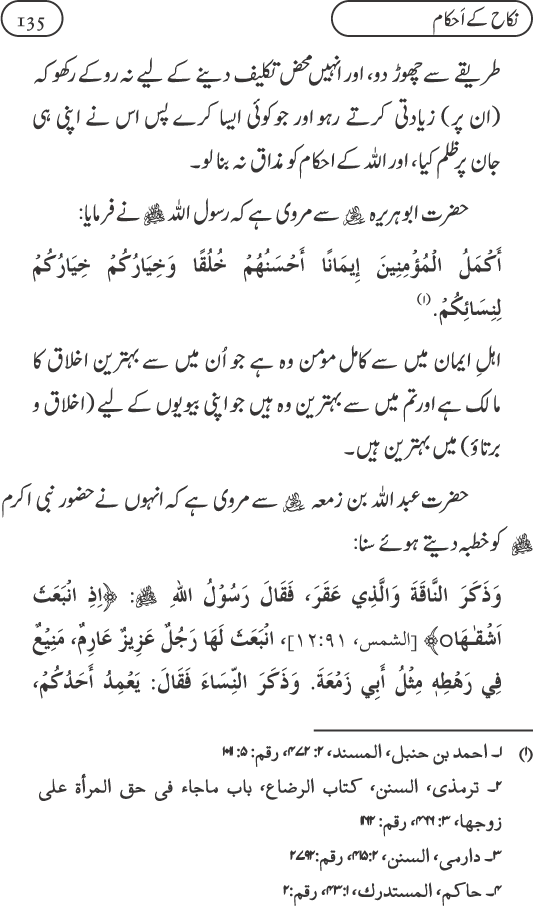 نکاح کے اَحکام
135
طریقے سے چھوڑ دو، اور انہیں محض تکلیف دینے کے لیے نہ روکے رکھو کہ
(ان پر) زیادتی کرتے رہو اور جو کوئی ایسا کرے پس اس نے اپنی ہی
جان پر ظلم کیا، اور اللہ کے احکام کو مذاق نہ بنا لو۔
حضرت ابو ہریرہ ؓ سے مروی ہے کہ رسول اللہ ﷺ نے فرمایا:
أَكْمَلُ الْمُؤْمِنِينَ إِيمَانًا أَحْسَنُهُمْ خُلُقًا وَخِيَارُكُمْ خِيَارُكُمْ
لِنِسَائِكُمْ.(۱)
اہلِ ایمان میں سے کامل مومن وہ ہے جو اُن میں سے بہترین اخلاق کا
مالک ہے اور تم میں سے بہترین وہ ہیں جو اپنی بیویوں کے لیے (اخلاق و
برتاؤ) میں بہترین ہیں۔
حضرت عبد اللہ بن زمعہ ؓ سے مروی ہے کہ انہوں نے حضور نبی اکرم
ﷺ کو خطبہ دیتے ہوئے سنا:
وَذَكَرَ النَّاقَةَ وَالَّذِي عَقَرَ، فَقَالَ رَسُوْلُ اللهِ ﷺ: ﴿اِذِ انْۢبَعَثَ
اَشْقٰهَا○﴾ [الشمس، ۹۱:۱۲]، انْبَعَثَ لَهَا رَجُلٌ عَزِيزٌ عَارِمٌ، مَنِيْعٌ
فِي رَهْطِهِ مِثْلُ أَبِي زَمْعَةَ. وَذَكَرَ النِّسَاءَ فَقَالَ: يَعْمِدُ أَحَدُكُمْ،
(۱) ۱۔ احمد بن حنبل، المسند، ۲: ۴۷۲، رقم: ۱۰۱۱۰
۲۔ ترمذی، السنن، کتاب الرضاع، باب ماجاء فی حق المرأة علی
زوجها، ۳: ۴۶۶، رقم: ۱۱۶۲
۳۔ دارمی، السنن، ۲: ۴۱۵، رقم: ۲۷۹۲
۴۔ حاکم، المستدرک، ۱: ۴۳، رقم: ۲